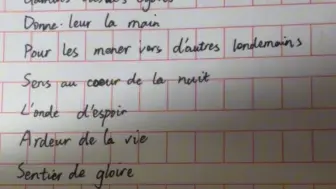 Donne-leur la main
Pour les maner vers d'autres londemains
Sens au coeur de la nuit
L'onde d'espoir
Ardeur de la vie
Sentier de gloire